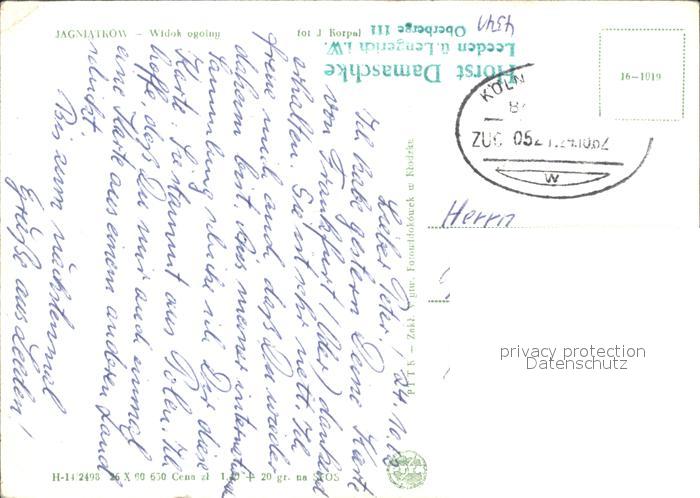 JAGNIĄTKÓW – Widok ogólny
fot J Korpal
Horst Damaschke
Leeden ü. Lengerich i.W.
Oberberge 111
4541
16-1019
KÖLN
ZUG 0521 24.10.62
W
Herrn
Lieber Peter! 24.10.62
Ich habe gestern Deine Karte
von Frankfurt (Oder) dankend
erhalten. Sie ist sehr nett. Ich
freue mich auch, daß Du wieder
daheim bist. Aus meiner
Sammlung schicke ich Dir diese
Karte. Sie stammt aus Polen. Ich
hoffe, daß Du mir auch einmal
eine Karte aus einem anderen Land
schickst.
Bis zum nächstenmal
Grüße aus Leeden!
PTTK – Zakł. Wytw. Fotowidokówek w Kłodzku
privacy protection
Datenschutz
H-14/2498 26 X 60 650 Cena zł 1,20 + 20 gr. na SFOS